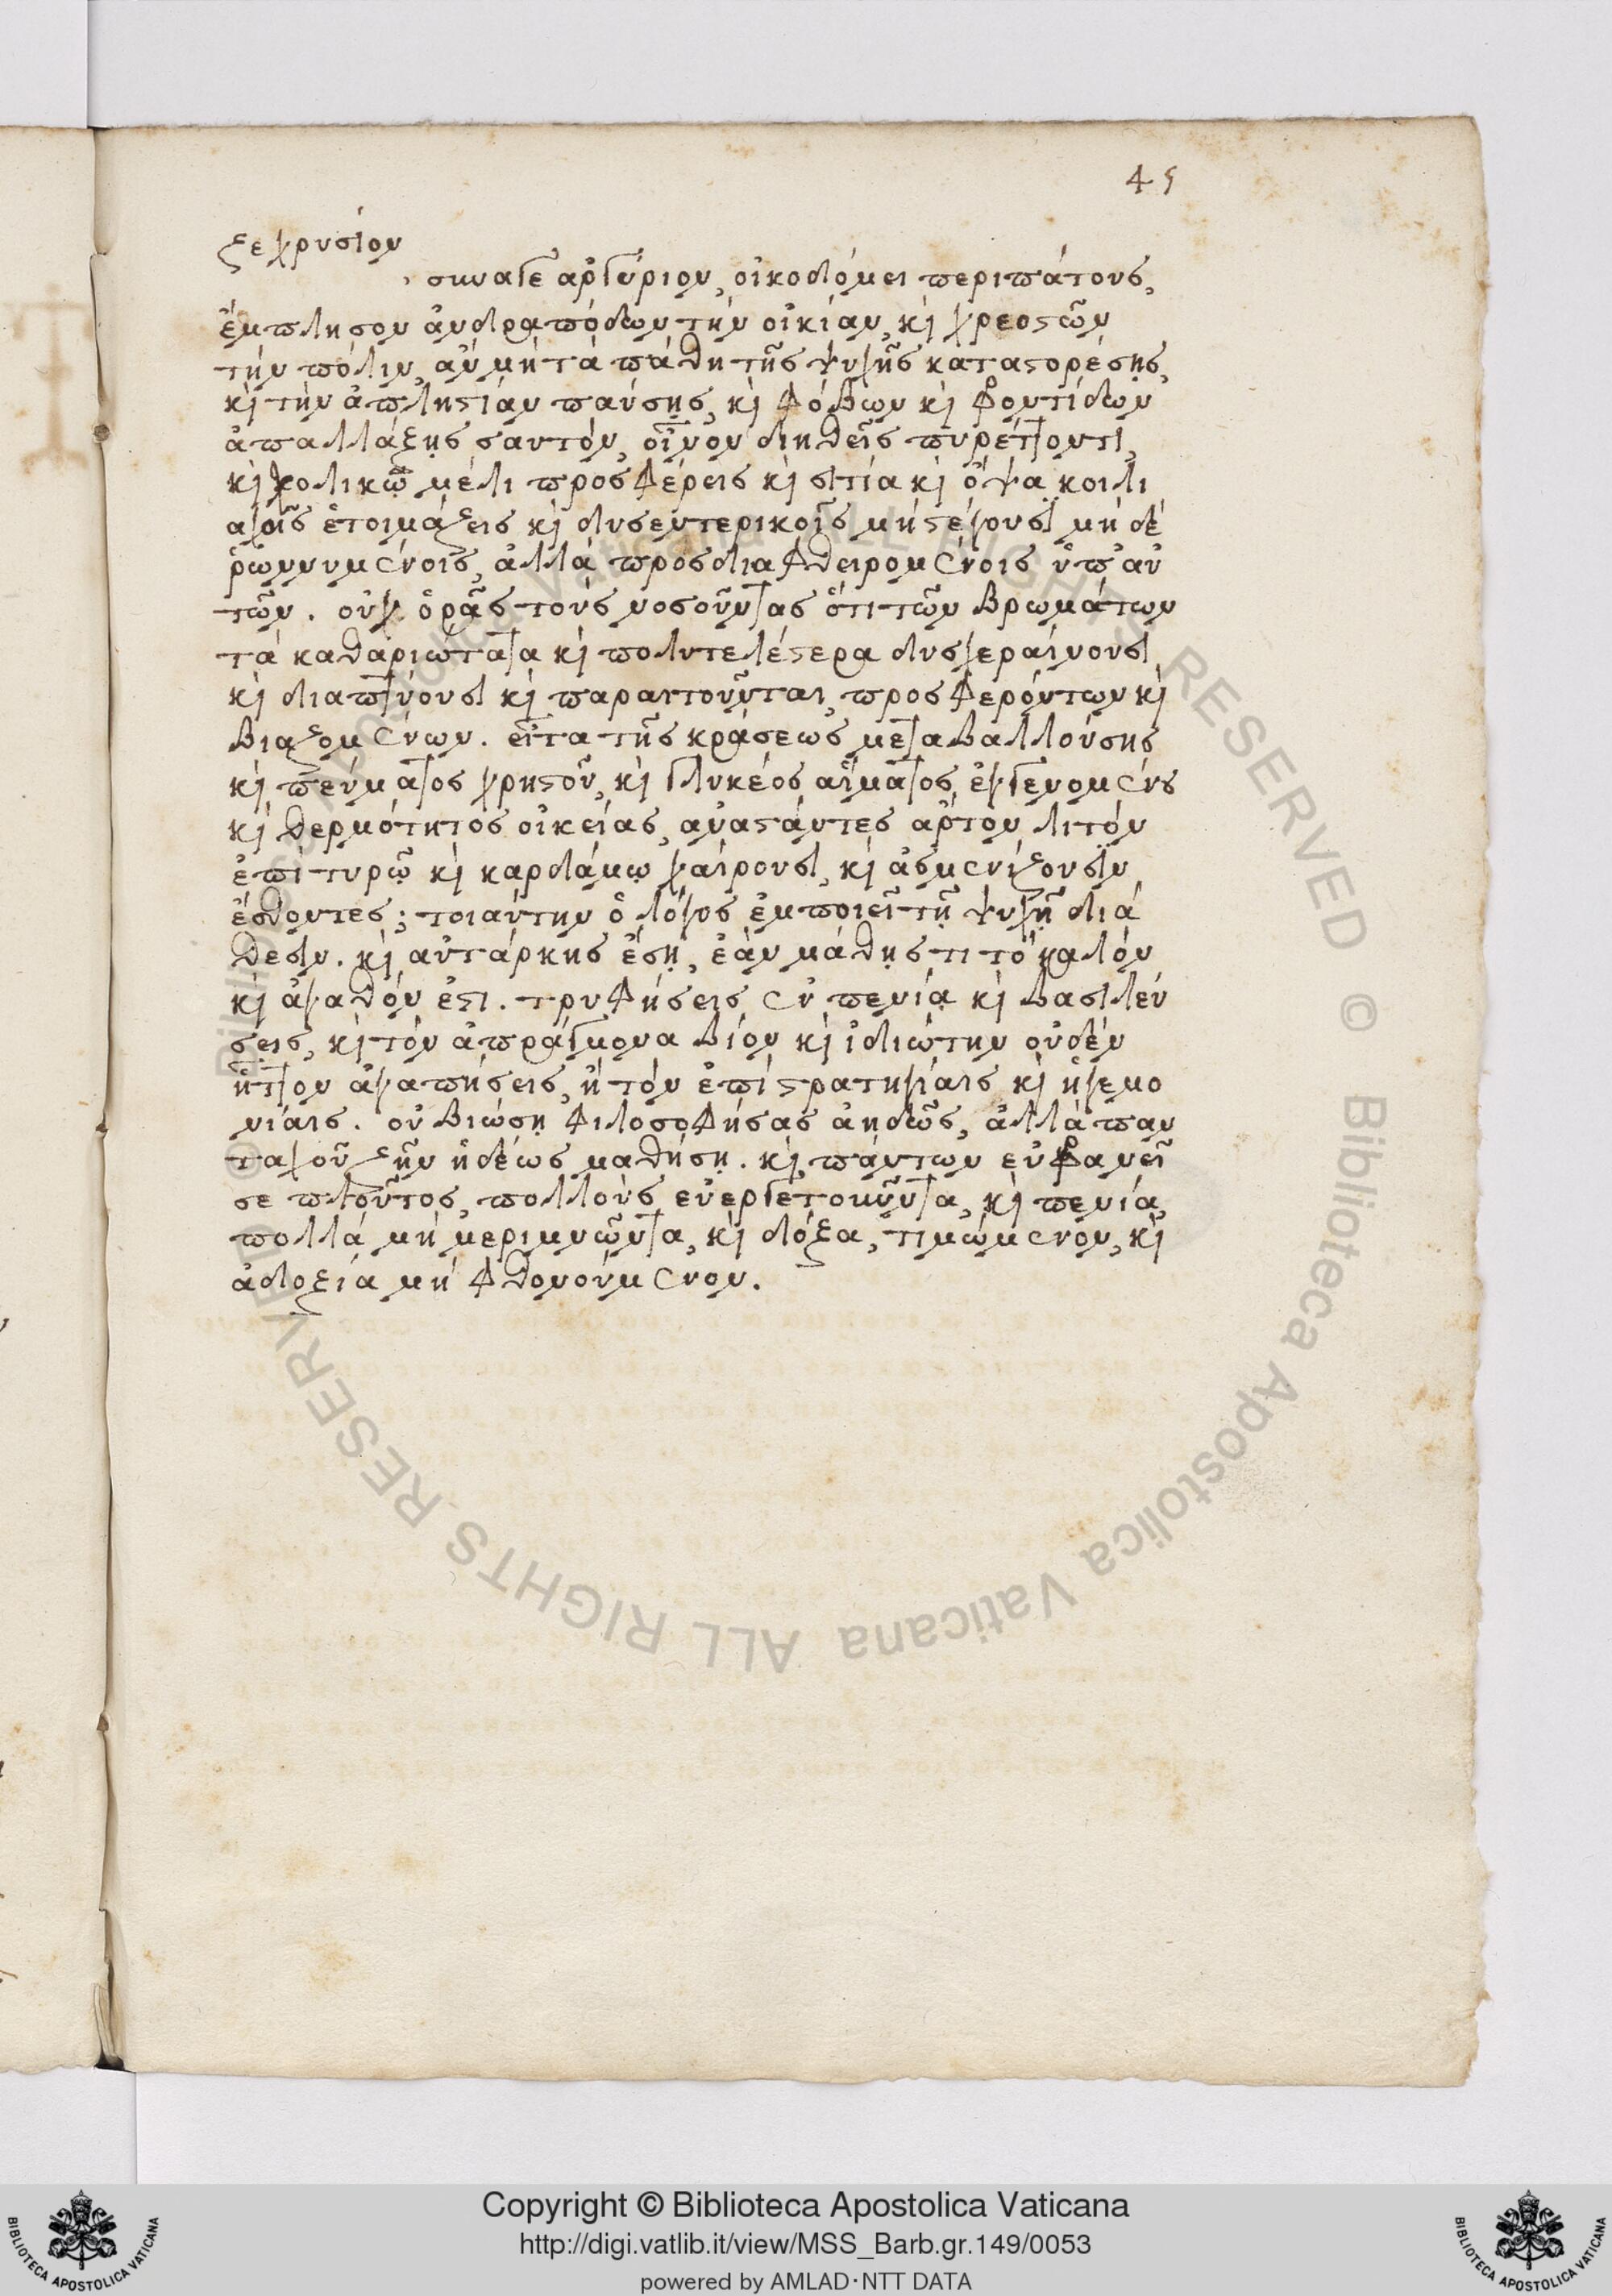 45
ζε χρυσίον
, συναγε ἀργύριον, οἰκοδόμει περιπάτους,
ἔμπλησον ἀνδραπόδων τὴν οἰκίαν, κὶ χρεοστῶν
τὴν πόλιν, ἂν μὴ τὰ πάθη τῆς ψυχῆς καταστορέσῃς,
κὶ τὴν ἀπληστίαν παύσῃς, κὶ φόβων κὶ φροντίδων
ἀπαλλάξῃς σαυτόν, οἶνον διηθεῖς πυρέττοντι,
κὶ χολικῷ μέλι προσφέρεις κὶ σιτία κὶ ὄψα κοιλι
ακοῖς ἑτοιμάζεις κὶ δυσεντερικοῖς μὴ στέγουσι μὴ δέ
ῥωννυμένοις, ἀλλὰ προσδιαφθειρομένοις ὑπ' αὐ
τῶν. οὐχ ὁρᾷς τοὺς νοσοῦντας ὅτι τῶν βρωμάτων
τὰ καθαριώτατα κὶ πολυτελέστερα δυσχεραίνουσι
κὶ διαπτύουσι κὶ παραιτοῦνται, προσφερόντων κὶ
βιαζομένων. εἶτα τῆς κράσεως μεταβαλλούσης
κὶ πνεύματος χρηστοῦ, κὶ γλυκέος αἵματος ἐγγενομένου
κὶ θερμότητος οἰκείας, ἀναστάντες ἄρτον λιτόν
ἐπὶ τυρῷ κὶ καρδάμῳ χαίρουσι, κὶ ἀσμενίζουσιν
ἐσθοντες; τοιαύτην ὁ λόγος ἐμποιεῖ τῇ ψυχῇ διά
θεσιν. κὶ αὐτάρκης ἔσῃ, ἐὰν μάθῃς τι τὸ καλόν
κὶ ἀγαθόν ἐστι. τρυφήσεις ἐν πενίᾳ κὶ βασιλεύ
σεις, κὶ τὸν ἀπράγμονα βίον κὶ ἰδιώτην οὐδέν
ἧττον ἀγαπήσεις, ἢ τὸν ἐπὶ στρατηγίαις κὶ ἡγεμο
νίαις. οὐ βιώσῃ φιλοσοφήσας ἀηδῶς, ἀλλὰ παν
ταχοῦ ζῆν ἡδέως μαθήσῃ. κὶ πάντων εὐφρανεῖ
σε πλοῦτος, πολλοὺς εὐεργετοῦντα, κὶ πενία,
πολλὰ μὴ μεριμνῶντα, κὶ δόξα, τιμώμενον, κὶ
ἀδοξία μὴ φθονούμενον.
Copyright © Biblioteca Apostolica Vaticana
http://digi.vatlib.it/view/MSS_Barb.gr.149/0053
powered by AMLAD·NTT DATA